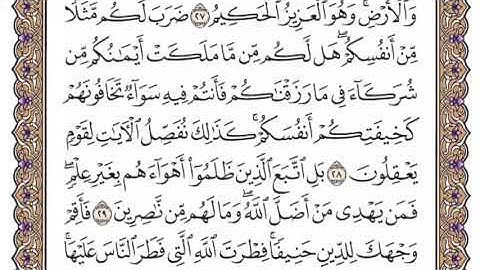 وَٱلْأَرْضِۚ وَهُوَ ٱلْعَزِيزُ ٱلْحَكِيمُ ٢٧ ضَرَبَ لَكُم مَّثَلًا
مِّنْ أَنفُسِكُمْۖ هَل لَّكُم مِّن مَّا مَلَكَتْ أَيْمَٰنُكُم مِّن
شُرَكَآءَ فِى مَا رَزَقْنَٰكُمْ فَأَنتُمْ فِيهِ سَوَآءٌ تَخَافُونَهُمْ
كَخِيفَتِكُمْ أَنفُسَكُمْۚ كَذَٰلِكَ نُفَصِّلُ ٱلْـَٔايَٰتِ لِقَوْمٍ
يَعْقِلُونَ ٢٨ بَلِ ٱتَّبَعَ ٱلَّذِينَ ظَلَمُوٓا۟ أَهْوَآءَهُم بِغَيْرِ عِلْمٍۖ
فَمَن يَهْدِى مَنْ أَضَلَّ ٱللَّهُۖ وَمَا لَهُم مِّن نَّٰصِرِينَ ٢٩ فَأَقِمْ
وَجْهَكَ لِلدِّينِ حَنِيفًاۚ فِطْرَتَ ٱللَّهِ ٱلَّتِى فَطَرَ ٱلنَّاسَ عَلَيْهَاۚ